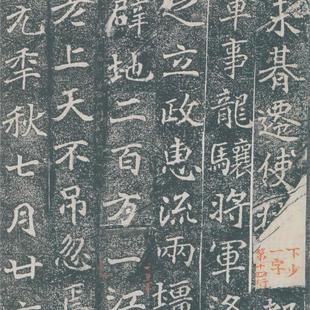 未朞遷使持
軍事龍驤將軍洛
之立政惠流兩壃
辟地二百方一江
上天不吊忽
元年秋七月廿
下少
一字
第十四行